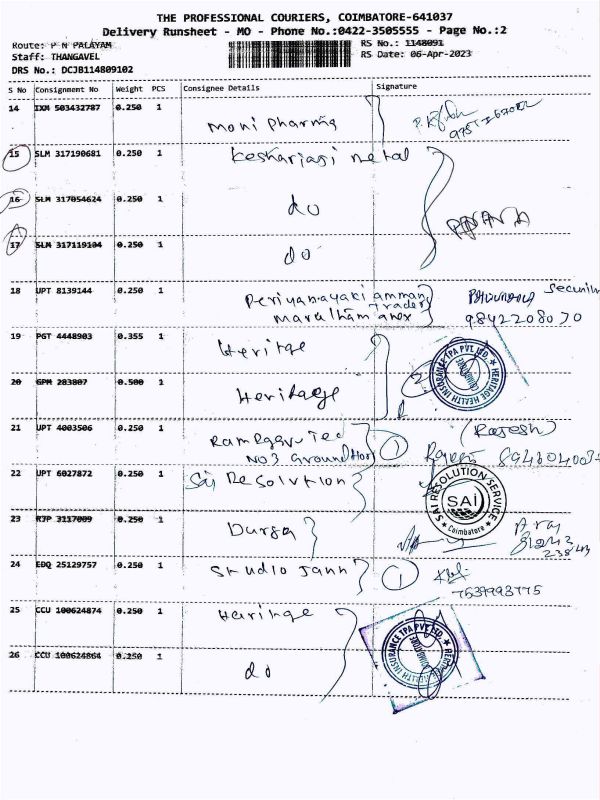 THE PROFESSIONAL COURIERS, COIMBATORE-641037
Delivery Runsheet - MO - Phone No.:0422-3505555 - Page No.:2
Route: P N PALAYAM
RS No.: 1148091
Staff: THANGAVEL
RS Date: 06-Apr-2023
DRS No.: DCJB114809102
S No Consignment No Weight PCS Consignee Details Signature
14 IXM 503432787 0.250 1
Moni Pharma
15 SLM 317190681 0.250 1 Kesharjagi metal
16 SLM 317054624 0.250 1
do
17 SLM 317119104 0.250 1
do
18 UPT 8139144 0.250 1
Periyanayaki amman
Trader
9842208070
19 PGT 4448903 0.355 1 Heritge
HERITAGE HEALTH INSURANCE TPA PVT LTD.
COIMBATORE
20 GPM 283807 0.500 1
Heritage
2
21 UPT 4003506 0.250 1
(Rajesh)
NO3 Ground floor
1
22 UPT 6027872 0.250 1 Sai Resolution
SAI RESOLUTION SERVICE
SAI
Coimbatore
23 RJP 3117009 0.250 1
Durga
24 EDQ 25129757 0.250 1 Studio Jann
1
7639993775
25 CCU 100624874 0.250 1 Haritge
HERITAGE HEALTH INSURANCE TPA PVT LTD.
COIMBATORE
26 CCU 100624864 0.250 1
do